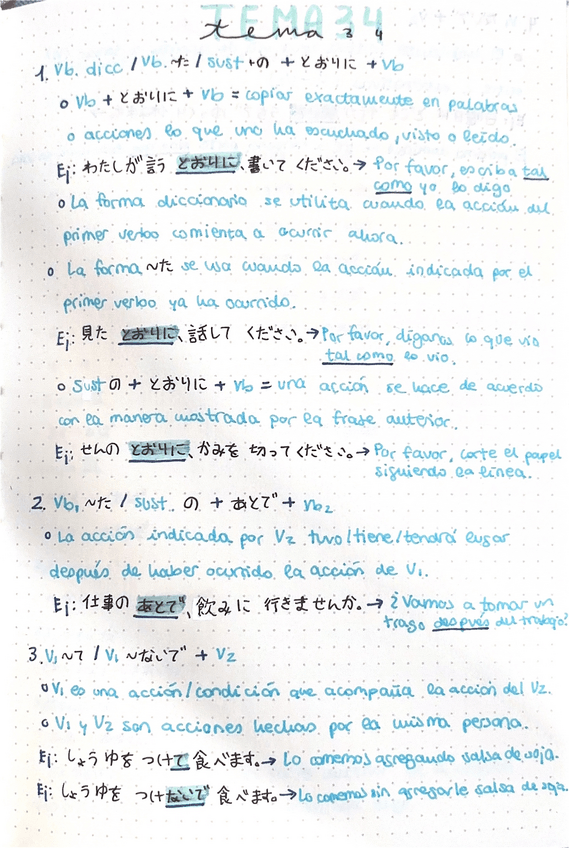 TEMA 34
tema 34
1. Vb. dicc / Vb. ~た / sust +の + とおりに + vb
o Vb + とおりに + vb = copiar exactamente en palabras
o acciones lo que uno ha escuchado, visto o leído.
Ej: わたしが言う とおりに、書いて ください。→ Por favor, escriba tal
como yo lo digo
o La forma diccionario se utilita cuando la acción del
primer verbo comienta a ocurrir ahora.
o La forma ~た se usa cuando la acción indicada por el
primer verbo ya ha ocurrido.
Ej: 見た とおりに、話して ください。→ Por favor, díganos lo que vio
tal como lo vio.
o Sust の + とおりに + vb = una acción se hace de acuerdo
con la manera mostrada por la frase anterior.
Ej: せんの とおりに、かみを 切ってください。→ Por favor, corte el papel
siguiendo la línea.
2. Vb₁ ~た / sust. の + あとで + vb₂
o La acción indicada por V₂ tuvo/tiene/tendrá lugar
después de haber ocurrido la acción de V₁.
Ej: 仕事の あとで、飲みに 行きませんか。→ ¿Vamos a tomar un
trago después del trabajo?
3. V₁ ~て / V₁ ~ないで + V₂
o V₁ es una acción/condición que acompaña la acción del V₂.
o V₁ y V₂ son acciones hechas por la misma persona.
Ej: しょうゆを つけて 食べます。→ Lo comemos agregando salsa de soja.
Ej: しょうゆを つけないで 食べます。→ Lo comemos sin agregarle salsa de soja.